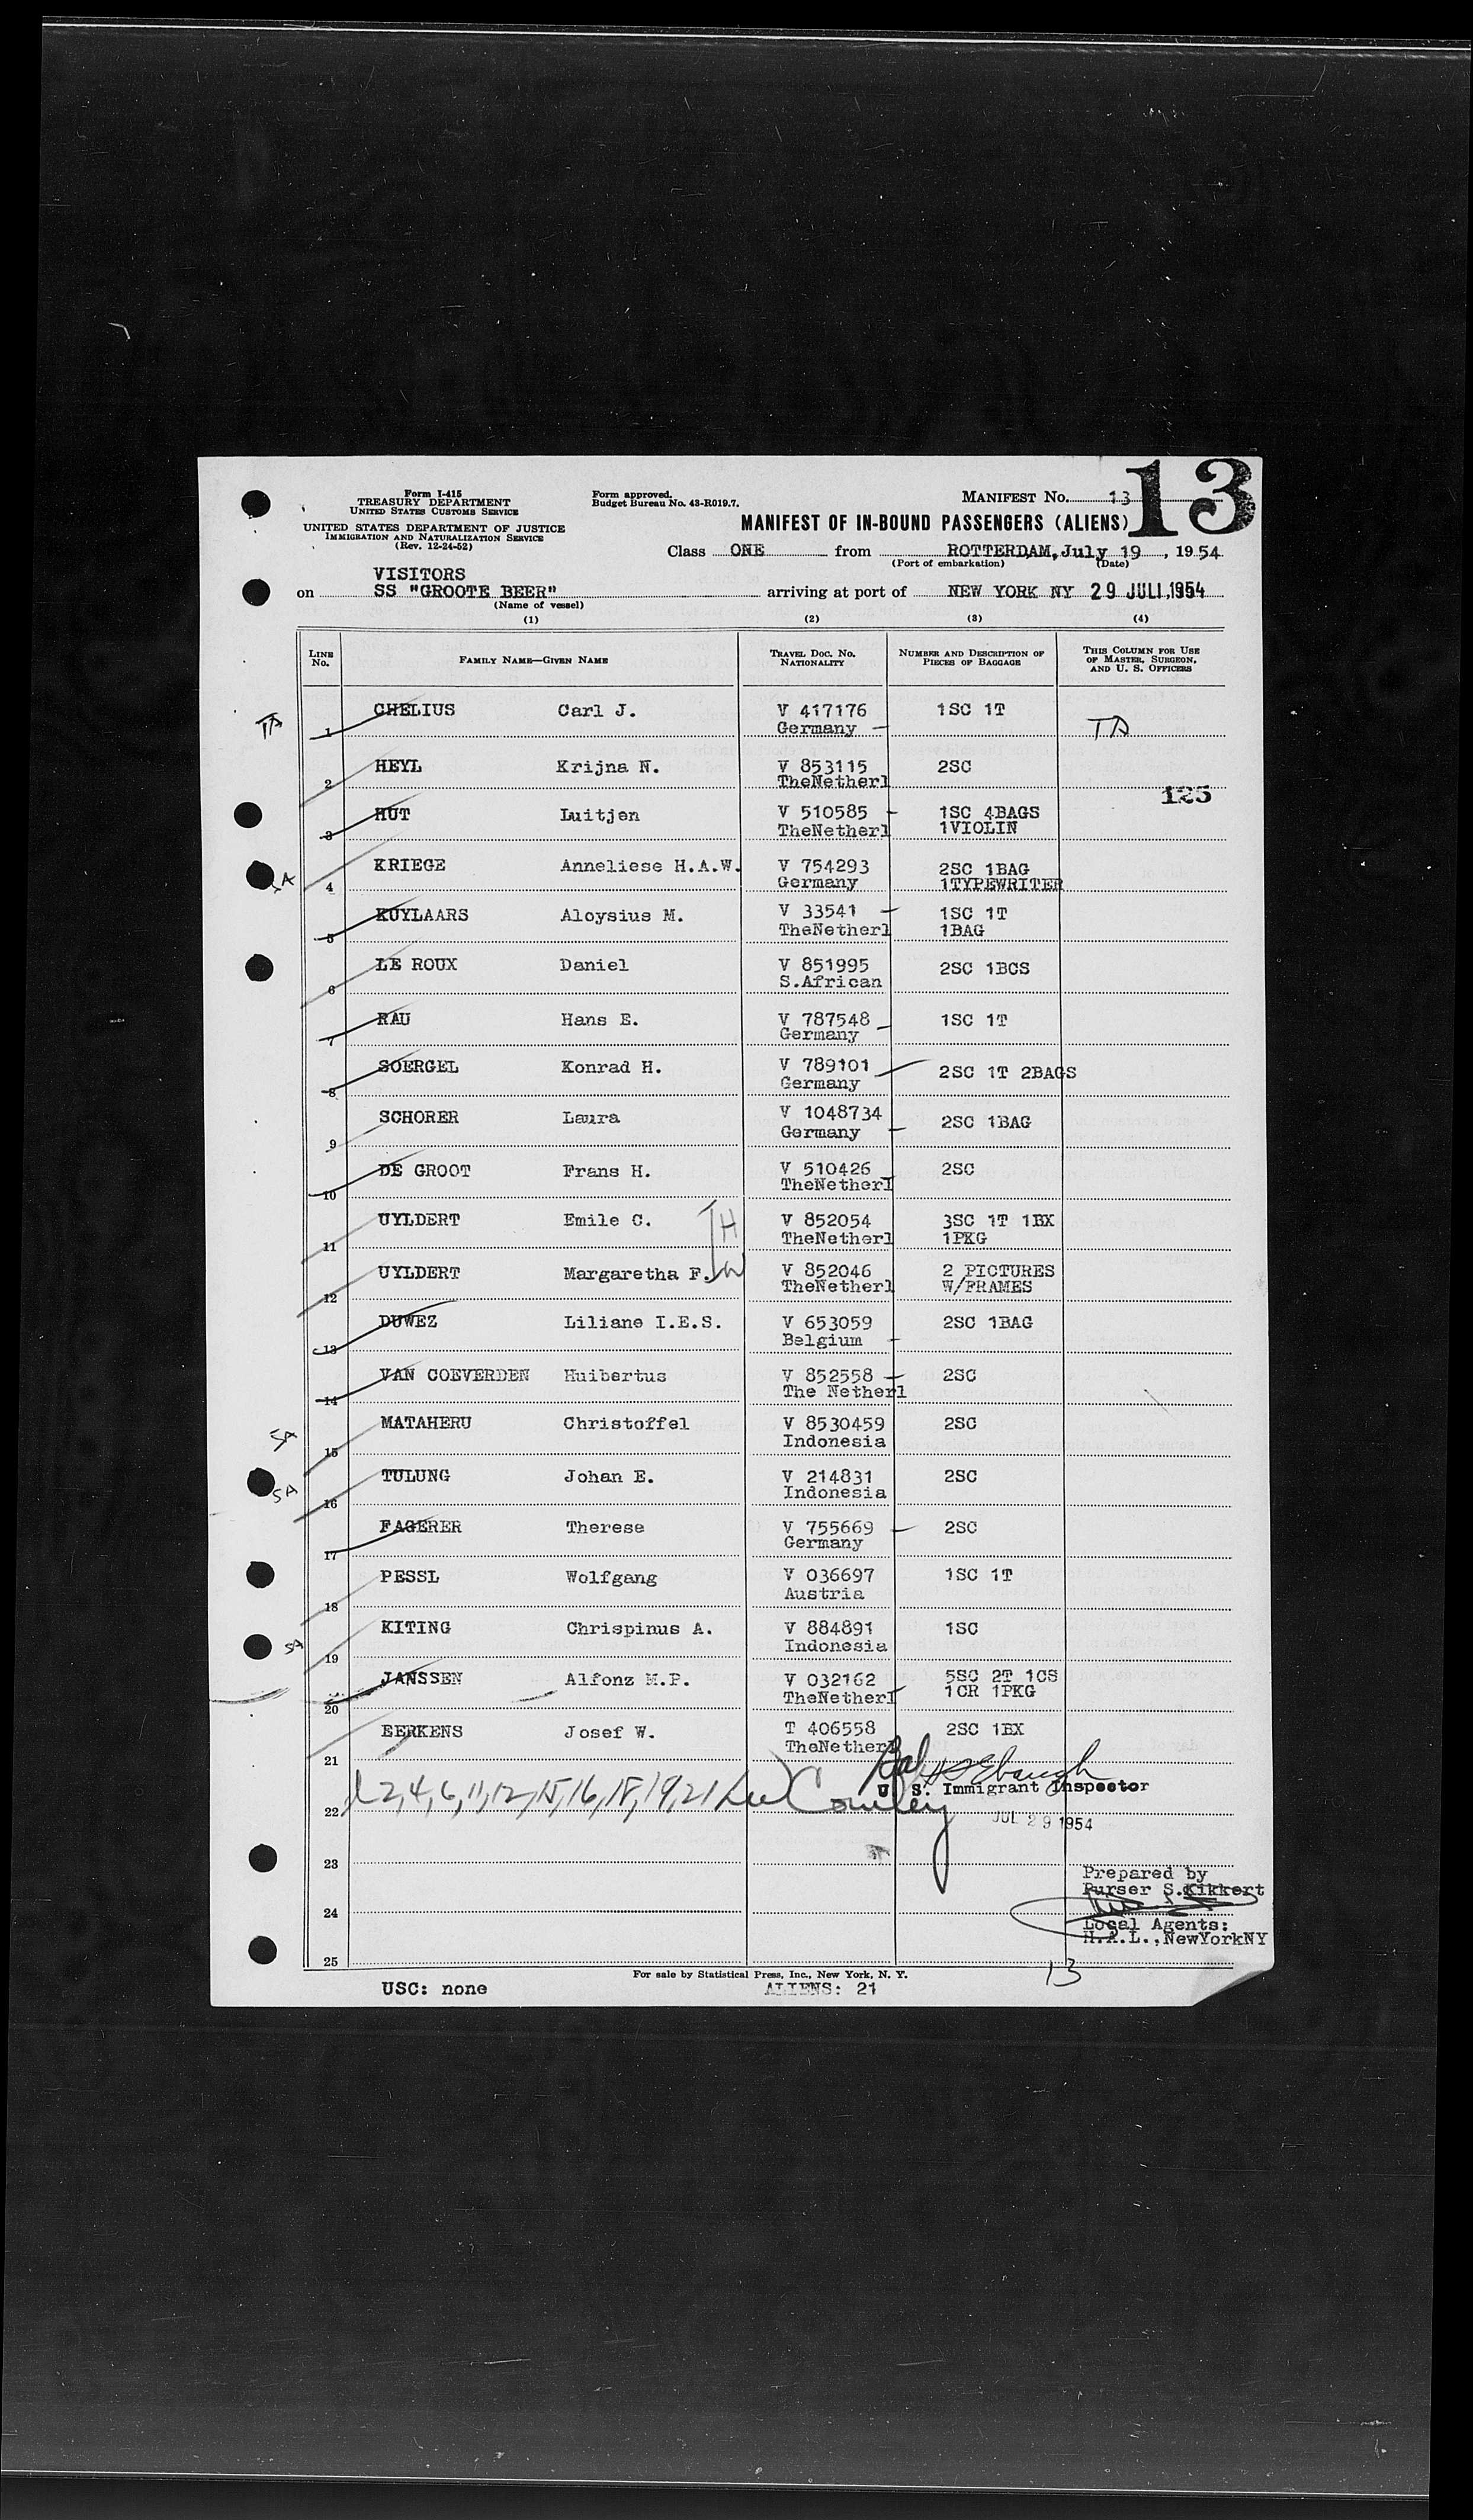 13
Form I-415
TREASURY DEPARTMENT
UNITED STATES CUSTOMS SERVICE
UNITED STATES DEPARTMENT OF JUSTICE
IMMIGRATION AND NATURALIZATION SERVICE
(Rev. 12-24-52)
Form approved.
Budget Bureau No. 43-R019.7.
MANIFEST NO. 13
MANIFEST OF IN-BOUND PASSENGERS (ALIENS)
Class ONE from ROTTERDAM, July 19, 1954
(Port of embarkation) (Date)
VISITORS
on SS "GROOTE BEER" arriving at port of NEW YORK NY 29 JULI, 1954
(Name of vessel)
(1) (2) (3) (4)
LINE NO. FAMILY NAME—GIVEN NAME TRAVEL DOC. NO. NATIONALITY NUMBER AND DESCRIPTION OF PIECES OF BAGGAGE THIS COLUMN FOR USE OF MASTER, SURGEON, AND U. S. OFFICERS
CHELIUS Carl J. V 417176 1SC 1T
1 Germany
HEYL Krijna N. V 853115 2SC
2 TheNetherl
125
HUT Luitjen V 510585 1SC 4BAGS
3 TheNetherl 1VIOLIN
KRIEGE Anneliese H.A.W. V 754293 2SC 1BAG
SA 4 Germany 1TYPEWRITER
KUYLAARS Aloysius M. V 33541 1SC 1T
5 TheNetherl 1BAG
LE ROUX Daniel V 851995 2SC 1BCS
6 S.African
RAU Hans E. V 787548 1SC 1T
7 Germany
SOERGEL Konrad H. V 789101 2SC 1T 2BAGS
8 Germany
SCHORER Laura V 1048734 2SC 1BAG
9 Germany
DE GROOT Frans H. V 510426 2SC
10 TheNetherl
UYLDERT Emile C. H V 852054 3SC 1T 1BX
11 TheNetherl 1PKG
UYLDERT Margaretha F. W V 852046 2 PICTURES
12 TheNetherl W/FRAMES
DUWEZ Liliane I.E.S. V 653059 2SC 1BAG
13 Belgium
VAN COEVERDEN Huibertus V 852558 2SC
14 The Netherl
MATAHERU Christoffel V 8530459 2SC
SA 15 Indonesia
TULUNG Johan E. V 214831 2SC
SA 16 Indonesia
FAGERER Therese V 755669 2SC
17 Germany
PESSL Wolfgang V 036697 1SC 1T
18 Austria
KITING Chrispinus A. V 884891 1SC
SA 19 Indonesia
JANSSEN Alfonz M.P. V 032162 5SC 2T 1CS
20 TheNetherl 1CR 1PKG
EERKENS Josef W. T 406558 2SC 1BX
21 TheNetherl
U. S. Immigrant Inspector
22 2,4,6,11,12,15,16,18,19,21
JUL 29 1954
23
Prepared by
Purser S.Kikkert
24
Local Agents:
H.A.L.,NewYorkNY
25
For sale by Statistical Press, Inc., New York, N. Y.
13
USC: none ALIENS: 21